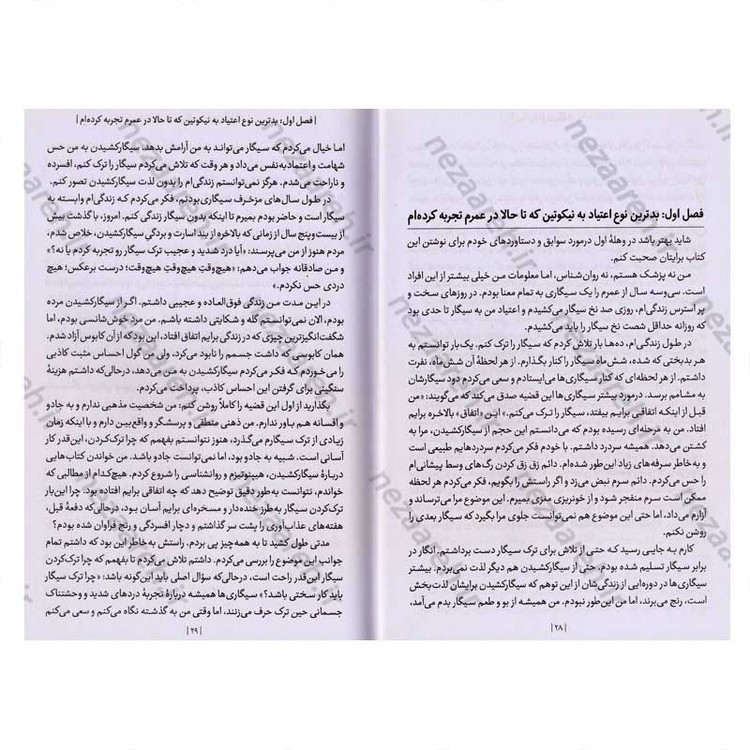 فصل اول: بدترین نوع اعتیاد به نیکوتین که تا حالا در عمرم تجربه کرده‌ام
شاید بهتر باشد در وهلهٔ اول درمورد سوابق و دستاوردهای خودم برای نوشتن این
کتاب برایتان صحبت کنم.
من نه پزشک هستم، نه روان‌شناس، اما معلومات من خیلی بیشتر از این افراد
است. سی‌وسه سال از عمرم را یک سیگاری به تمام معنا بودم. در روزهای سخت و
پر استرس زندگی‌ام، روزی صد نخ سیگار می‌کشیدم و اعتیاد من به سیگار تا حدی بود
که روزانه حداقل شصت نخ سیگار را باید می‌کشیدم.
در طول زندگی‌ام، ده‌ها بار تلاش کردم که سیگار را ترک کنم. یک‌بار توانستم به
هر بدبختی که شده، شش‌ماه سیگار را کنار بگذارم. از هر لحظهٔ آن شش‌ماه، نفرت
داشتم. از هر لحظه‌ای که کنار سیگاری‌ها می‌ایستادم و سعی می‌کردم دود سیگارشان
به مشامم برسد. درمورد بیشتر سیگاری‌ها این قضیه صدق می‌کند که می‌گویند: «من
قبل از اینکه اتفاقی برایم بیفتد، سیگار را ترک می‌کنم.» این «اتفاق» بالاخره برایم
افتاد. من به مرحله‌ای رسیده بودم که می‌دانستم این حجم از سیگارکشیدن، مرا به
کشتن می‌دهد. همیشه سردرد داشتم. با خودم فکر می‌کردم سردردهایم طبیعی است
و به خاطر سرفه‌های زیاد این‌طور شده‌ام. دائم زق زق کردن رگ‌های وسط پیشانی‌ام
را حس می‌کردم. دائم سرم نبض می‌زد و اگر راستش را بگویم، فکر می‌کردم هر لحظه
ممکن است سرم منفجر شود و از خونریزی مغزی بمیرم. این موضوع مرا می‌ترساند و
آزارم می‌داد، اما حتی این موضوع هم نمی‌توانست جلوی مرا بگیرد که سیگار بعدی را
روشن نکنم.
کارم به جایی رسید که حتی از تلاش برای ترک سیگار دست برداشتم. انگار در
برابر سیگار تسلیم شده بودم. حتی از سیگارکشیدن هم دیگر لذت نمی‌بردم. بیشتر
سیگاری‌ها در دوره‌ایی از زندگی‌شان از این توهم که سیگارکشیدن برایشان لذت‌بخش
است، رنج می‌برند، اما من این‌طور نبودم. من همیشه از بو و طعم سیگار بدم می‌آمد،
| ۲۸ |
| فصل اول: بدترین نوع اعتیاد به نیکوتین که تا حالا در عمرم تجربه کرده‌ام |
اما خیال می‌کردم که سیگار می‌تواند به من آرامش بدهد. سیگارکشیدن به من حس
شهامت و اعتمادبه‌نفس می‌داد و هر وقت که تلاش می‌کردم سیگار را ترک کنم، افسرده
و ناراحت می‌شدم. هرگز نمی‌توانستم زندگی‌ام را بدون لذت سیگارکشیدن تصور کنم.
در طول سال‌های مزخرف سیگاری‌بودنم، فکر می‌کردم که زندگی‌ام وابسته به
سیگار است و حاضر بودم بمیرم تا اینکه بدون سیگار زندگی کنم. امروز، با گذشت بیش
از بیست‌وپنج سال از زمانی که بالاخره از بند اسارت بردگیِ سیگارکشیدن، خلاص شدم،
مردم هنوز از من می‌پرسند: «آیا درد شدید و عجیب ترک سیگار رو تجربه کردم یا نه؟»
و من صادقانه جواب می‌دهم: «هیچ‌وقتِ هیچ‌وقتِ هیچ‌وقت؛ درست برعکس؛ هیچ
دردی حس نکردم.»
در این مدت من زندگی فوق‌العاده و عجیبی داشتم. اگر از سیگارکشیدن مرده
بودم، الان نمی‌توانستم گله و شکایتی داشته باشم. من مرد خوش‌شانسی بودم، اما
شگفت‌انگیزترین چیزی که در زندگی برایم اتفاق افتاد، این بود که از آن کابوس آزاد شدم.
همان کابوسی که داشت جسمم را نابود می‌کرد، ولی من گول احساس مثبت کاذبی
را می‌خوردم که فکر می‌کردم سیگارکشیدن به من می‌دهد، درحالی‌که داشتم هزینهٔ
سنگینی برای گرفتن این احساس کاذب، پرداخت می‌کردم.
بگذارید از اول این قضیه را کاملاً روشن کنم: من شخصیت مذهبی ندارم و به جادو
و افسانه هم باور ندارم. من ذهنی منطقی و پرسشگر و واقع‌بین دارم و با اینکه زمان
زیادی از ترک سیگارم می‌گذرد، هنوز نتوانستم بفهمم که چرا ترک‌کردن، این‌قدر کار
آسانی است. شبیه به جادو بود، اما نمی‌توانست جادو باشد. من خواندن کتاب‌هایی
دربارهٔ سیگارکشیدن، هیپنوتیزم و روانشناسی را شروع کردم. هیچ‌کدام از مطالبی که
خواندم، نتوانست به‌طور دقیق توضیح دهد که چه اتفاقی برایم افتاده بود. چرا این‌بار
ترک‌کردن سیگار به‌طرز خنده‌دار و مسخره‌ای برایم آسان بود، درحالی‌که دفعهٔ قبل،
هفته‌های عذاب‌آوری را پشت سر گذاشتم و دچار افسردگی و رنج فراوان شده بودم؟
مدتی طول کشید تا به همه‌چیز پی بردم. راستش به خاطر این بود که داشتم تمام
جوانب این موضوع را بررسی می‌کردم. داشتم تلاش می‌کردم تا بفهمم که چرا ترک‌کردن
سیگار این‌قدر راحت است، درحالی‌که سؤال اصلی باید این‌گونه باشد: «چرا ترک سیگار
باید کار سختی باشد؟» سیگاری‌ها همیشه دربارهٔ تجربهٔ دردهای شدید و وحشتناک
جسمانی حین ترک حرف می‌زنند، اما وقتی من به گذشته نگاه می‌کنم و سعی می‌کنم
| ۲۹ |
nezaareh.ir